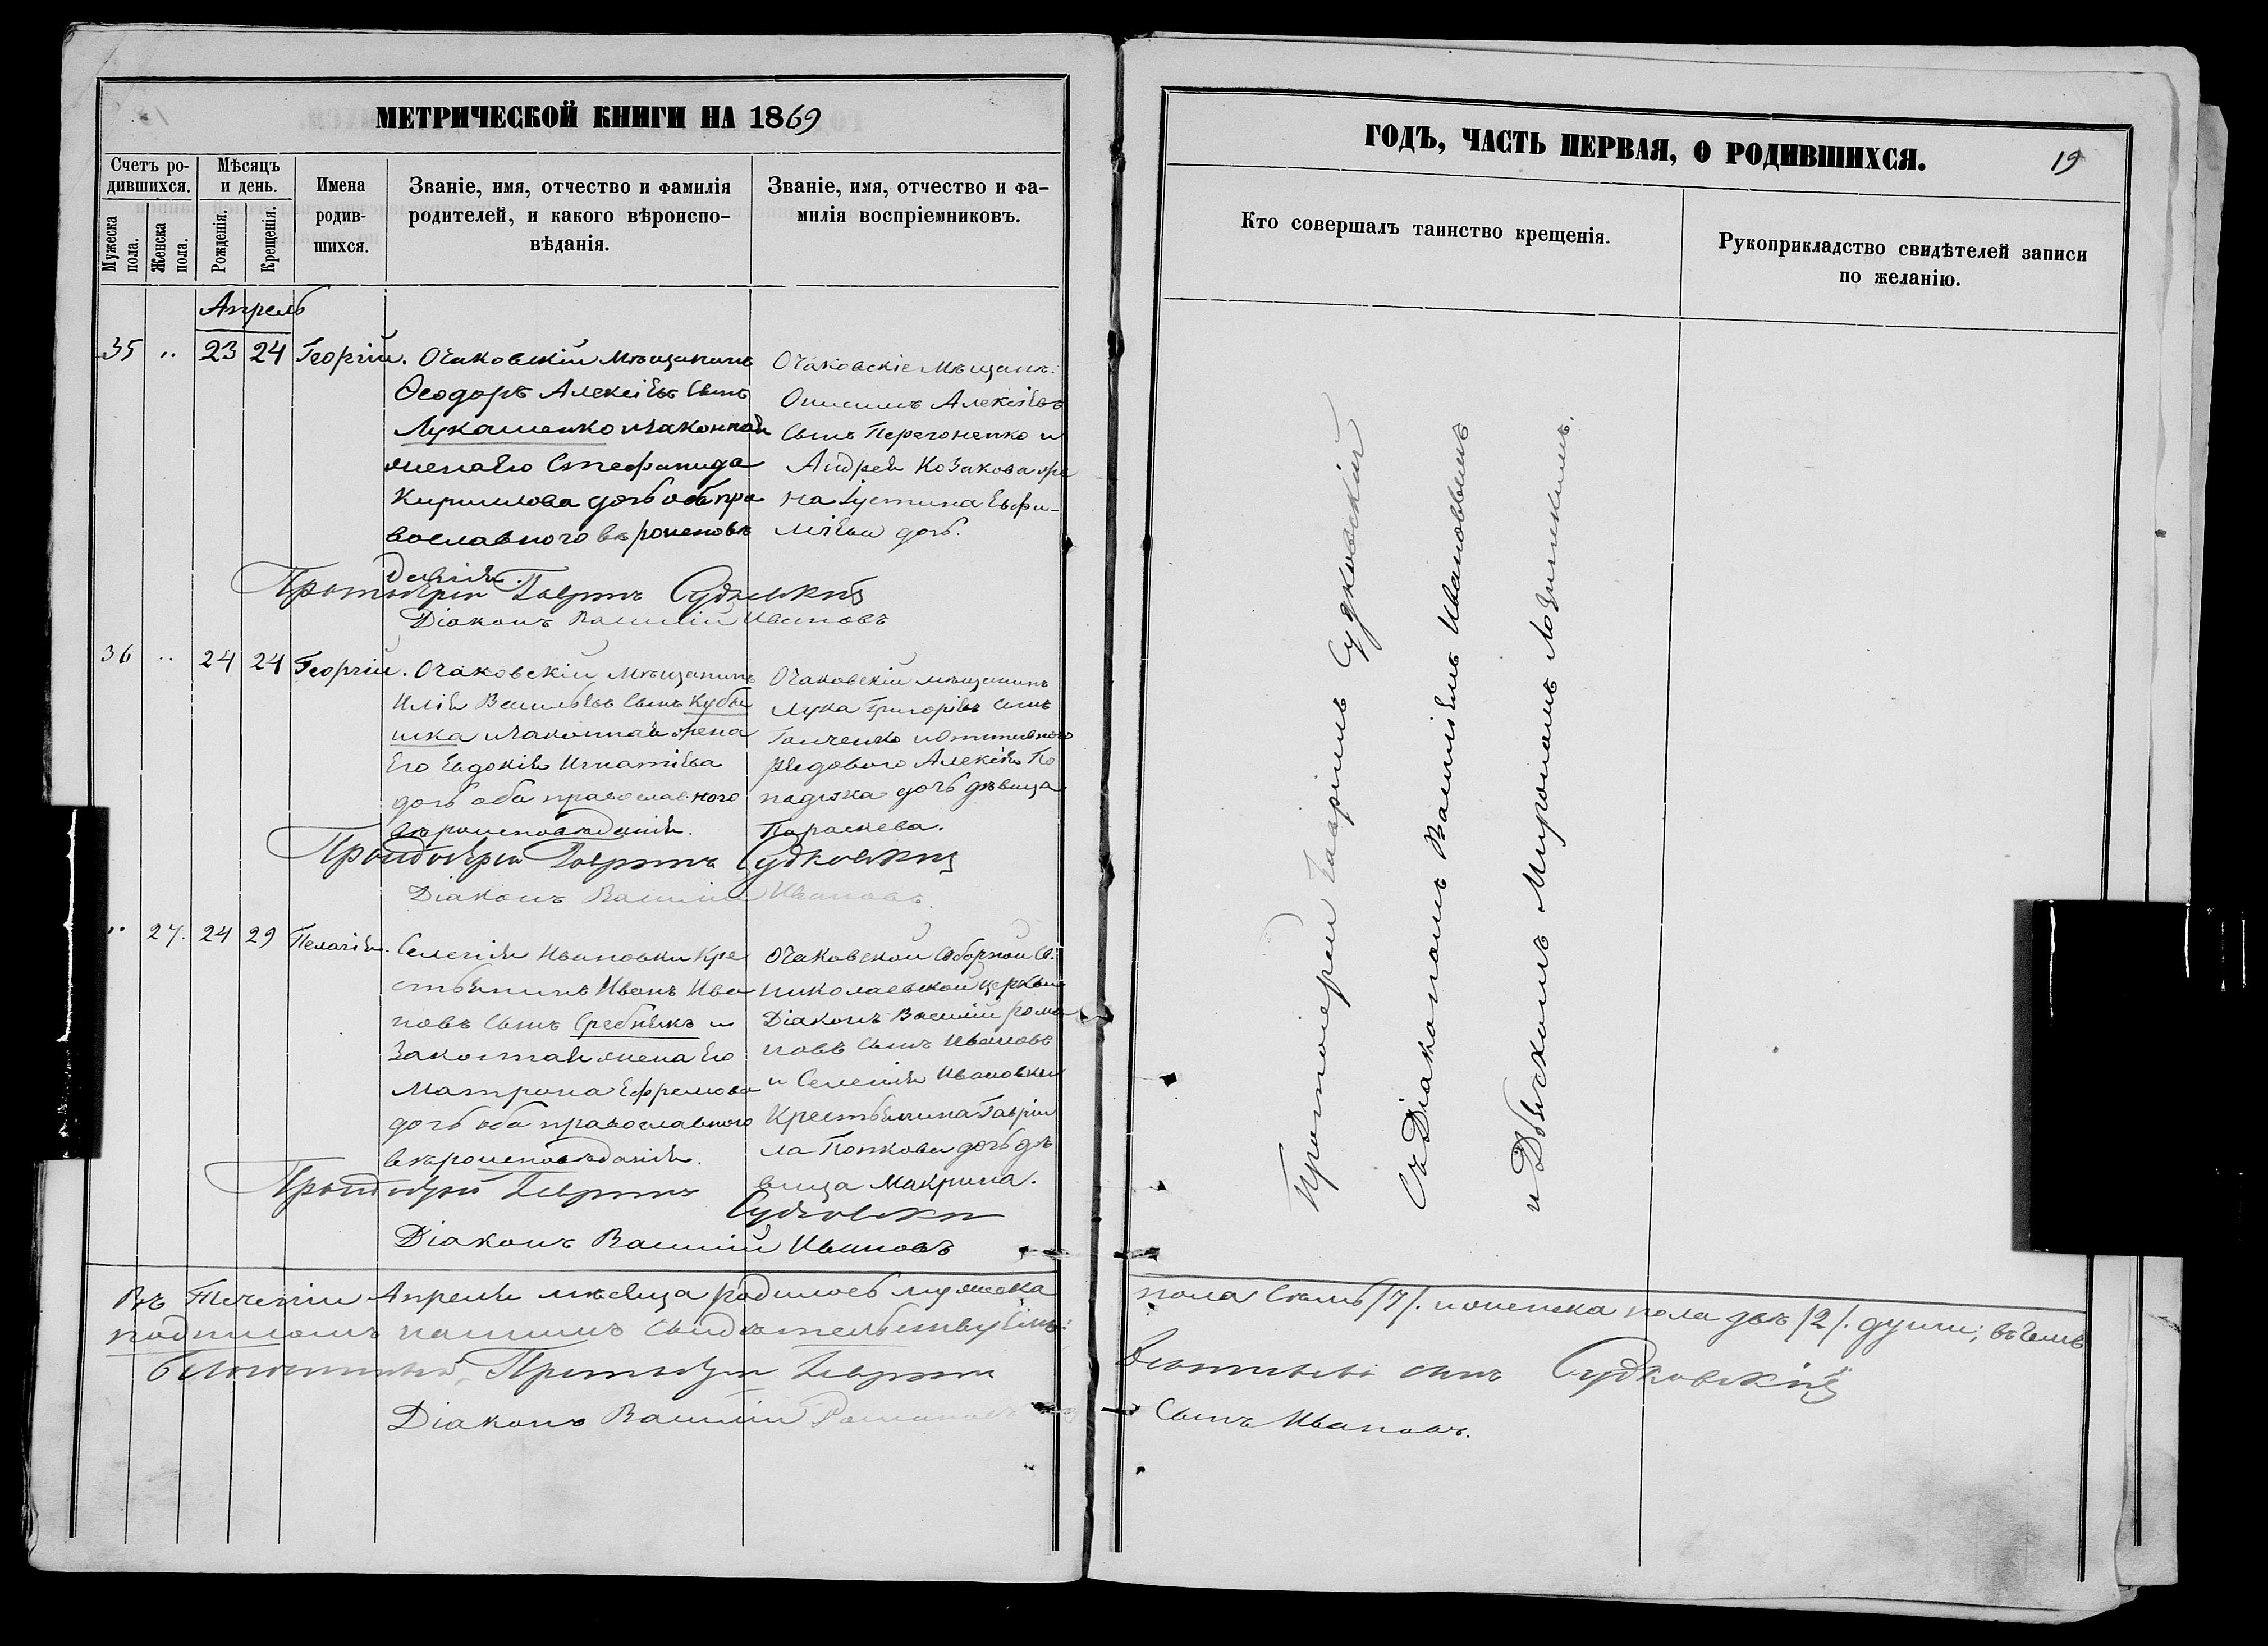 МЕТРИЧЕСКОЙ КНИГИ НА 1869
Счетъ ро-
дившихся.
Мужеска
пола.
Женска
пола.
Мѣсяцъ
и день.
Рожденія.
Крещенія.
Имена
родив-
шихся.
Званіе, имя, отчество и фамилія
родителей, и какого вѣроиспо-
вѣданія.
Званіе, имя, отчество и фа-
милія воспріемниковъ.
Апрель
35 „ 23 24 Георгій.
Очаковскій мѣщанинъ
Ѳеодоръ Алексіевъ сынъ
Лукашенко и законная
жена его Стефанида
Кирилова дочь оба пра
вославного вѣроисповѣ
данія.
Очаковскіе мѣщане:
Онисимъ Алексіевъ
сынъ Перегоненко и
Андрея Козакова же
на Іустина Евфи-
міева дочь.
Протоіерей Гавріилъ Судковскій
Діаконъ Василій Ивановъ
36 „ 24 24 Георгій.
Очаковскій мѣщанинъ
Илія Васильевъ сынъ Кубы
шка и законная жена
его Евдокія Игнатіева
дочь оба православного
вѣроисповѣданія.
Очаковскій мѣщанинъ
Лука Григорьевъ сынъ
Ганченко и отставного
рядового Алексія По
падюка дочь дѣвица
Параскева.
Протоіерей Гавріилъ Судковскій
Діаконъ Василій Ивановъ
„ 27. 24 29 Пелагія.
Селенія Ивановки кре
стьянинъ Иванъ Ива
новъ сынъ Сребнякъ и
законная жена его
Матрона Ефремова
дочь оба православного
вѣроисповѣданія.
Очаковской Соборной Св.
Николаевской церкви
Діаконъ Василій Рома
новъ сынъ Ивановъ
и Селенія Ивановки
крестьянина Гаврии
ла Попкова дочь дѣ
вица Макрина.
Протоіерей Гавріилъ
Судковскій
Діаконъ Василій Ивановъ
Въ течении Апреля мѣсяца родилось мужеска
подписомъ нашимъ свидѣтельствуемъ:
Протоіерей Гавріилъ
Діаконъ Василій Романовъ
ГОДЪ, ЧАСТЬ ПЕРВАЯ, О РОДИВШИХСЯ.
19
Кто совершалъ таинство крещенія.
Рукоприкладство свидѣтелей записи
по желанію.
Протоіерей Гавріилъ Судковскій
Съ Діакономъ Василіемъ Ивановымъ
и Дьячкомъ Мирономъ Лозинскимъ.
пола семь /7/. и женска пола двѣ /2/. души; въ чемъ
сынъ Судковскій
сынъ Ивановъ.